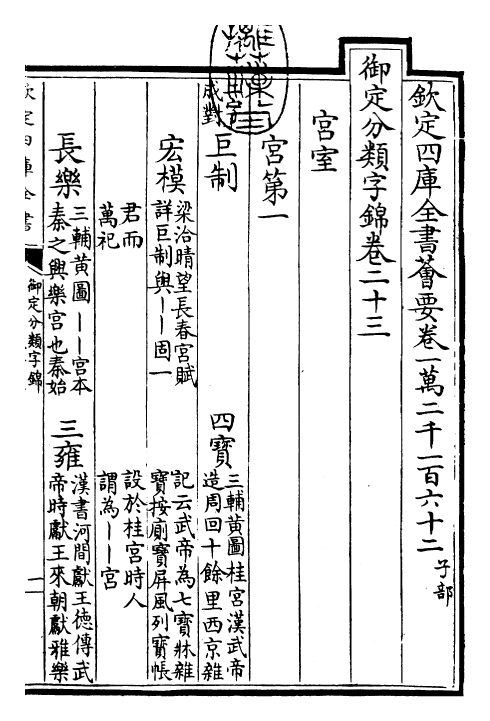 欽定四庫全書薈要卷一萬二千一百六十二 子部
御定分類字錦卷二十三
宮室
宮第一
二字
成對
巨制
宏模
梁洽晴望長春宮賦
詳巨制與丨丨固一
君而
萬祀
四寶
三輔黃圖桂宮漢武帝
造周回十餘里西京雜
記云武帝為七寶牀雜
寶按廁寶屏風列寶帳
設於桂宮時人
謂為丨丨宮
長樂
三輔黃圖丨丨宮本
秦之興樂宮也秦始
三雍
漢書河間獻王德傳武
帝時獻王來朝獻雅樂
欽定四庫全書
御定分類字錦
一